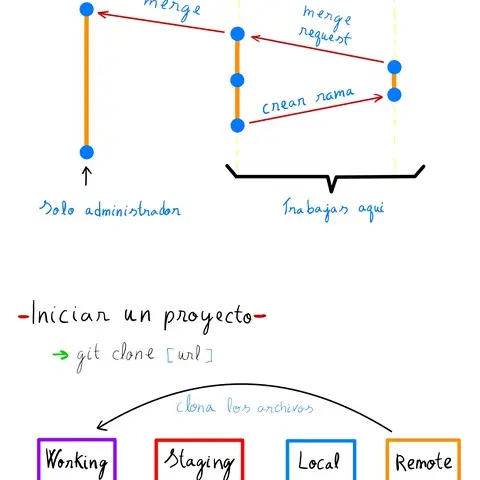 merge
merge
request
crear rama
Solo administrador
Trabajas aquí
-Iniciar un proyecto-
→ git clone [url]
clona los archivos
Working
Staging
Local
Remote